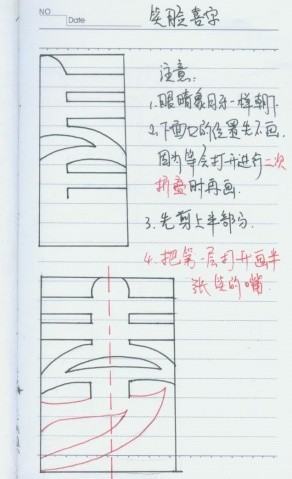 NO
Date
笑脸喜字
注意:
1.眼睛象月牙一样朝下.
2.下面口的位置先不画.
因为等会打开进行二次
折叠时再画.
3.先剪上半部分.
4.把第一层打开画半
张笑的嘴.